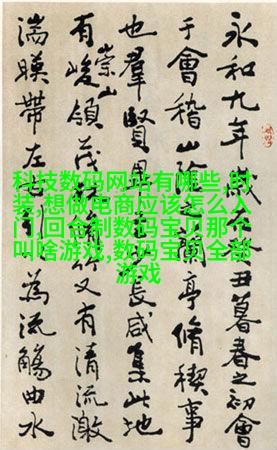 永和九年丑暮春之初會
于會稽山亭脩稧事
也羣賢長咸集此地
有崇山峻領茂又有清流激
湍暎帶左為流觴曲水
科技数码网站有哪些,时
装,想做电商应该怎么入
门,回合制数码宝贝那个
叫啥游戏,数码宝贝全部
游戏